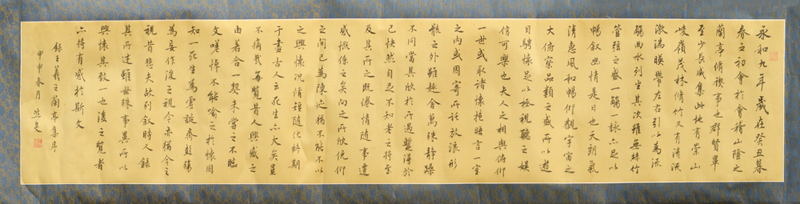 永和九年歲在癸丑暮
春之初會於會稽山陰之
蘭亭脩禊事也群賢畢
至少長咸集此地有崇山
峻嶺茂林脩竹又有清流
激湍映帶左右引以為流
觴曲水列坐其次雖無絲竹
管弦之盛一觴一詠亦足以
暢敘幽情是日也天朗氣
清惠風和暢仰觀宇宙之
大俯察品類之盛所以遊
目騁懷足以極視聽之娛
信可樂也夫人之相與俯仰
一世或取諸懷抱晤言一室
之內或因寄所託放浪形
骸之外雖趣舍萬殊靜躁
不同當其欣於所遇暫得於
己快然自足不知老之將至
及其所之既倦情隨事遷
感慨係之矣向之所欣俛仰
之間已為陳迹猶不能不以
之興懷況脩短隨化終期
於盡古人云死生亦大矣豈
不痛哉每覽昔人興感之
由若合一契未嘗不臨
文嗟悼不能喻之於懷固
知一死生為虛誕齊彭殤
為妄作後之視今亦猶今之
視昔悲夫故列敘時人錄
其所述雖世殊事異所以
興懷其致一也後之覽者
亦將有感於斯文
錄王羲之蘭亭集序
甲申春月